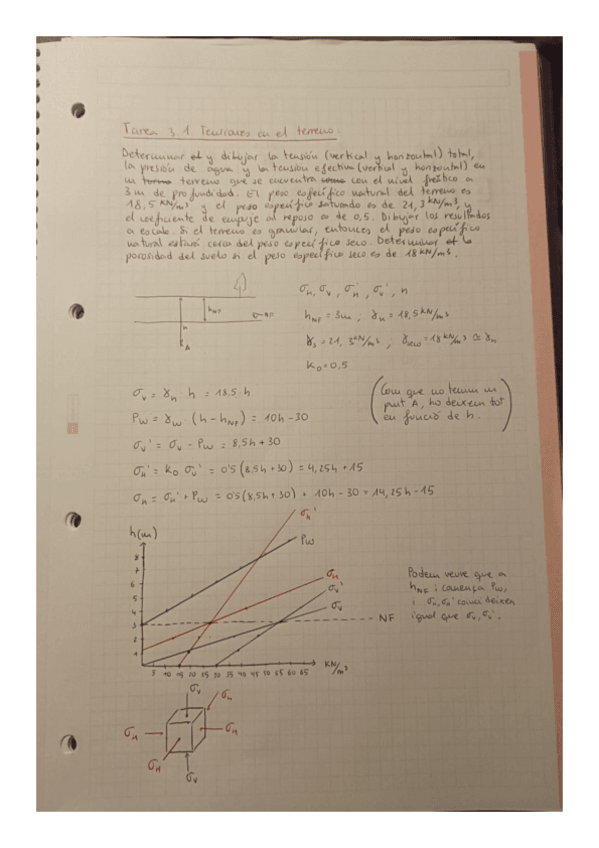 Tarea 3.1 Tensiones en el terreno.
Determinar el y dibujar la tensión (vertical y horizontal) total,
la presión de agua y la tensión efectiva (vertical y horizontal) en
un terreno que se encuentra con el nivel freático a
3 m de profundidad. El peso específico natural del terreno es
18,5 kN/m³ y el peso específico saturado es de 21,3 kN/m³, y
el coeficiente de empuje al reposo es de 0,5. Dibujar los resultados
a escala. Si el terreno es granular, entonces el peso específico
natural estará cerca del peso específico seco. Determinar el la
porosidad del suelo si el peso específico seco es de 18 kN/m³.
σH, σv, σH', σv', n
hNF
NF
h
A
hNF = 3m ; γn = 18,5 kN/m³
γs = 21,3 kN/m³ ; γseco = 18 kN/m³ ≃ γn
K0 = 0,5
σv = γn · h = 18,5 · h
Pw = γw · (h - hNF) = 10h - 30
σv' = σv - Pw = 8,5h + 30
σH' = K0 σv' = 0'5 (8,5h + 30) = 4,25h + 15
σH = σH' + Pw = 0'5 (8,5h + 30) + 10h - 30 = 14,25h - 15
(Com que no tenim un
punt A, ho deixem tot
en funció de h.)
h(m)
8
7
6
5
4
3
2
1
5 10 15 20 25 30 35 40 45 50 55 60 65
kN/m³
σH'
Pw
σH
σv'
σv
NF
Podem veure que a
hNF comença Pw,
i σH, σH' coincideixen
igual que σv, σv'.
σv
σH
σH
σH
σH
σv